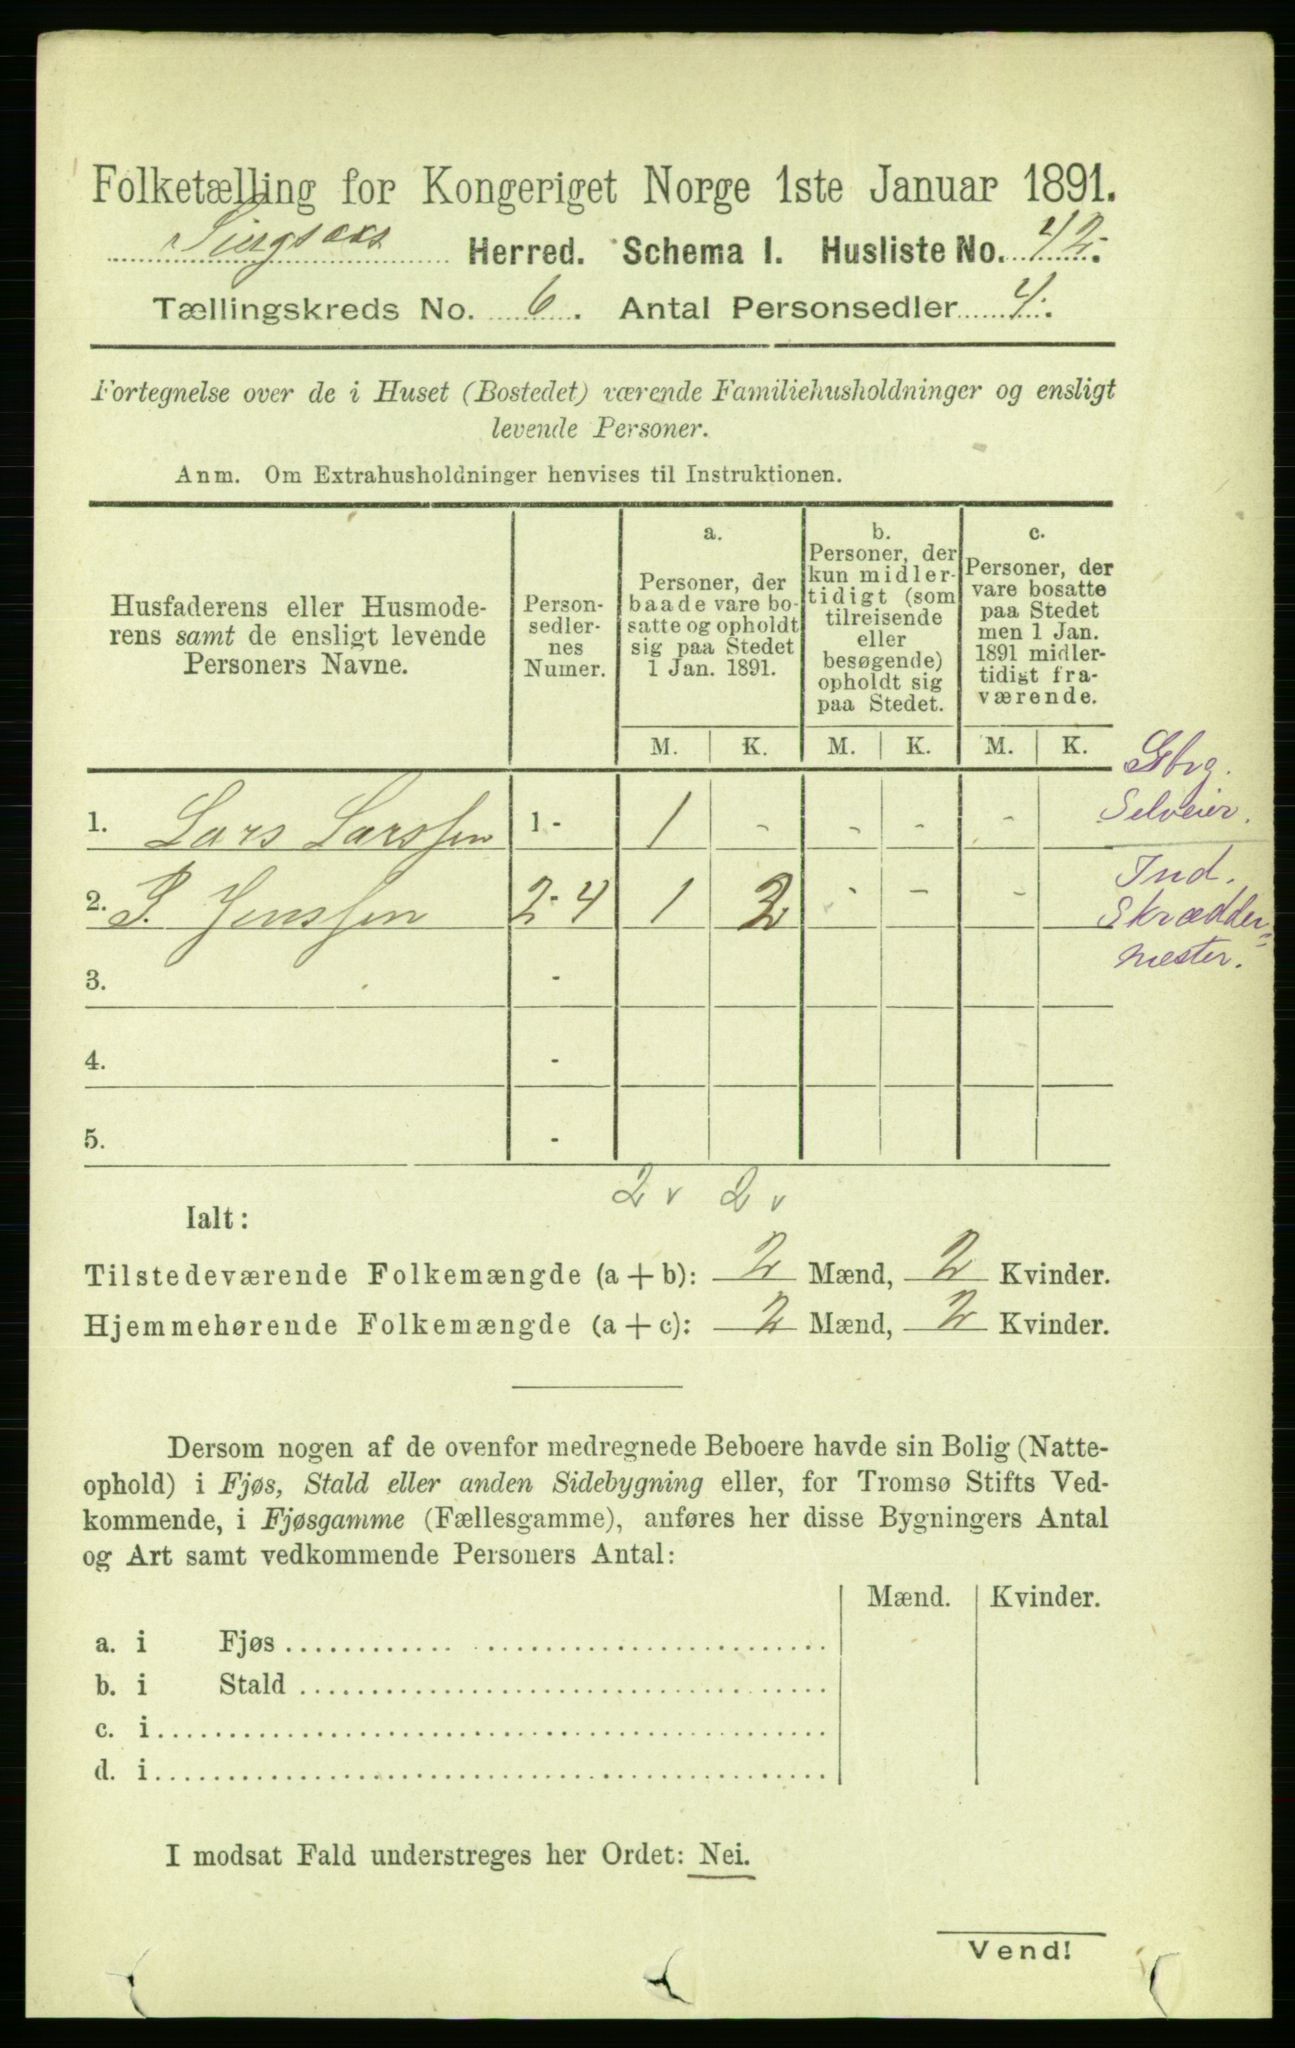 Folketælling for Kongeriget Norge 1ste Januar 1891.
Singsaas Herred. Schema I. Husliste No. 42.
Tællingskreds No. 6. Antal Personsedler 4.
Fortegnelse over de i Huset (Bostedet) værende Familiehusholdninger og ensligt
levende Personer.
Anm. Om Extrahusholdninger henvises til Instruktionen.
Husfaderens eller Husmode-
rens samt de ensligt levende
Personers Navne.
Person-
sedler-
nes
Numer.
a.
Personer, der
baade vare bo-
satte og opholdt
sig paa Stedet
1 Jan. 1891.
b.
Personer, der
kun midler-
tidigt (som
tilreisende
eller
besøgende)
opholdt sig
paa Stedet.
c.
Personer, der
vare bosatte
paa Stedet
men 1 Jan.
1891 midler-
tidigt fra-
værende.
M. K. M. K. M. K.
1. Lars Larssen 1 - 1 - - - -
Gbrg.
Selveier.
2. P. Jenssen 2-4 1 2 - - -
Ind.
Skrædder=
mester.
3. -
4. -
5. -
2 v 2 v
Ialt:
Tilstedeværende Folkemængde (a + b): 2 Mænd, 2 Kvinder.
Hjemmehørende Folkemængde (a + c): 2 Mænd, 2 Kvinder.
Dersom nogen af de ovenfor medregnede Beboere havde sin Bolig (Natte-
ophold) i Fjøs, Stald eller anden Sidebygning eller, for Tromsø Stifts Ved-
kommende, i Fjøsgamme (Fællesgamme), anføres her disse Bygningers Antal
og Art samt vedkommende Personers Antal:
Mænd. Kvinder.
a. i Fjøs
b. i Stald
c. i
d. i
I modsat Fald understreges her Ordet: Nei.
Vend!